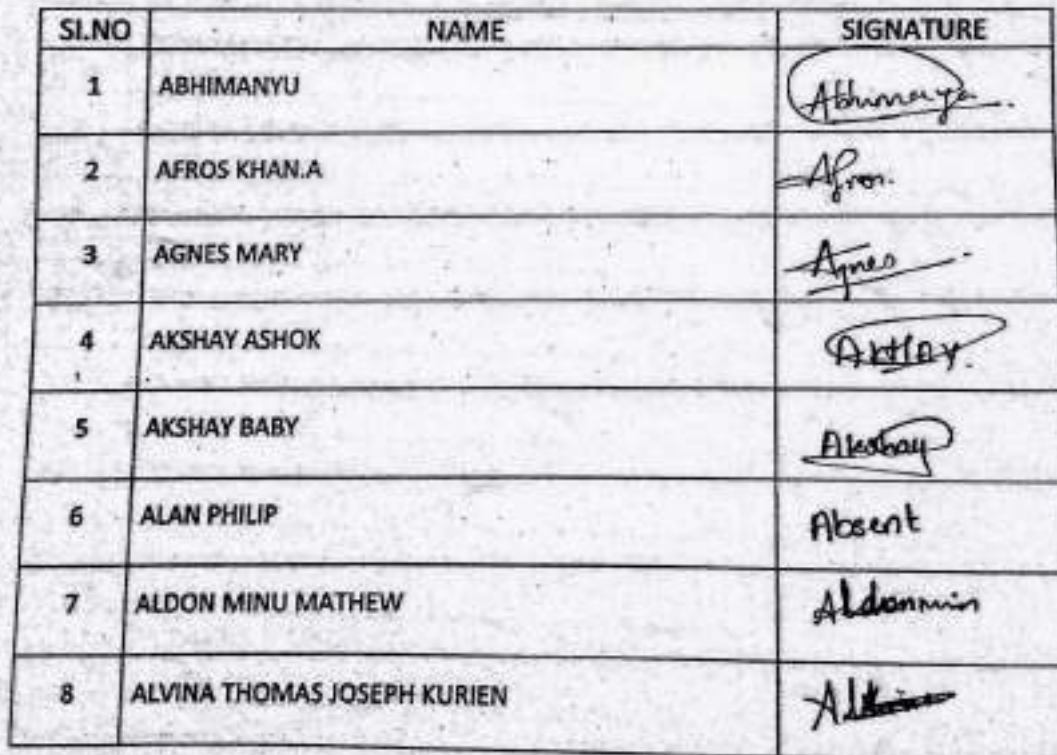 SI.NO NAME SIGNATURE
1 ABHIMANYU Abhimanyu
2 AFROS KHAN.A Afros.
3 AGNES MARY Agnes
4 AKSHAY ASHOK AKSHAY.
5 AKSHAY BABY Akshay
6 ALAN PHILIP Absent
7 ALDON MINU MATHEW Aldonmin
8 ALVINA THOMAS JOSEPH KURIEN